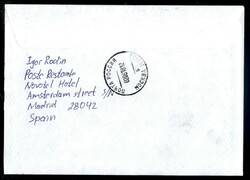 Igor Rodin
Poste Restante
Novotel Hotel
Amsterdam street S/N
Madrid 28042
Spain
ПОЧТА РОССИИ
МОСКВА